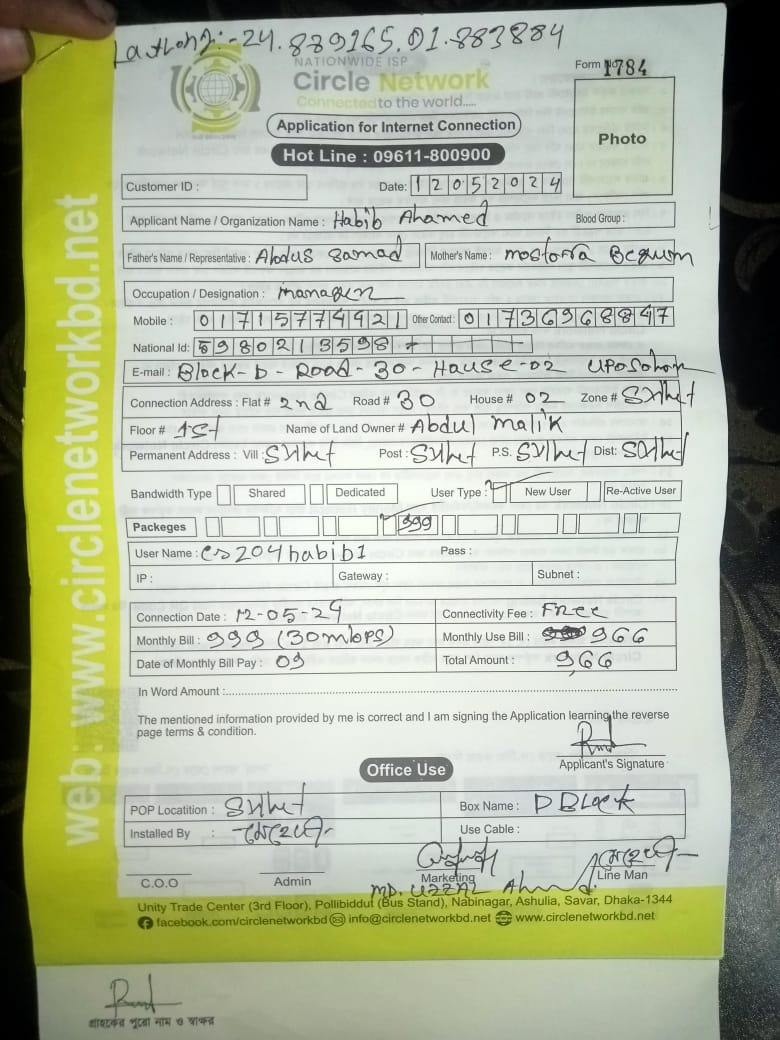 Lat Long:- 24.889165.91.883884
NATIONWIDE ISP
Circle Network
Connected to the world.....
Form No 1784
Application for Internet Connection
Photo
Hot Line : 09611-800900
Customer ID : Date: 12052024
Applicant Name / Organization Name : Habib Ahamed Blood Group :
Father's Name / Representative : Abdus Samad Mother's Name : mostorra Begum
Occupation / Designation : manager
Mobile : 01715774421 Other Contact : 01736968847
National Id: 5980213598
E-mail : Block-D-Road-30-Hause-02 UPoSohom
Connection Address : Flat # 2nd Road # 30 House # 02 Zone # Sylhet
Floor # 1st Name of Land Owner # Abdul malik
Permanent Address : Vill : Sylhet Post : Sylhet P.S. Sylhet Dist: Sylhet
Bandwidth Type Shared Dedicated User Type : New User Re-Active User
Packeges 999
User Name : cs204habib1 Pass :
IP : Gateway : Subnet :
Connection Date : 12-05-24 Connectivity Fee : Free
Monthly Bill : 999 (30mbps) Monthly Use Bill : 966
Date of Monthly Bill Pay : 09 Total Amount : 966
In Word Amount :
The mentioned information provided by me is correct and I am signing the Application learning the reverse
page terms & condition.
Applicant's Signature
Office Use
POP Locatition : Sylhet Box Name : D BLock
Installed By : মেহেদী Use Cable :
মেহেদী
C.O.O Admin Marketing Line Man
MD. UZZAL Ahmd.
Unity Trade Center (3rd Floor), Pollibiddut (Bus Stand), Nabinagar, Ashulia, Savar, Dhaka-1344
facebook.com/circlenetworkbd info@circlenetworkbd.net www.circlenetworkbd.net
web: www.circlenetworkbd.net
গ্রাহকের পুরো নাম ও স্বাক্ষর